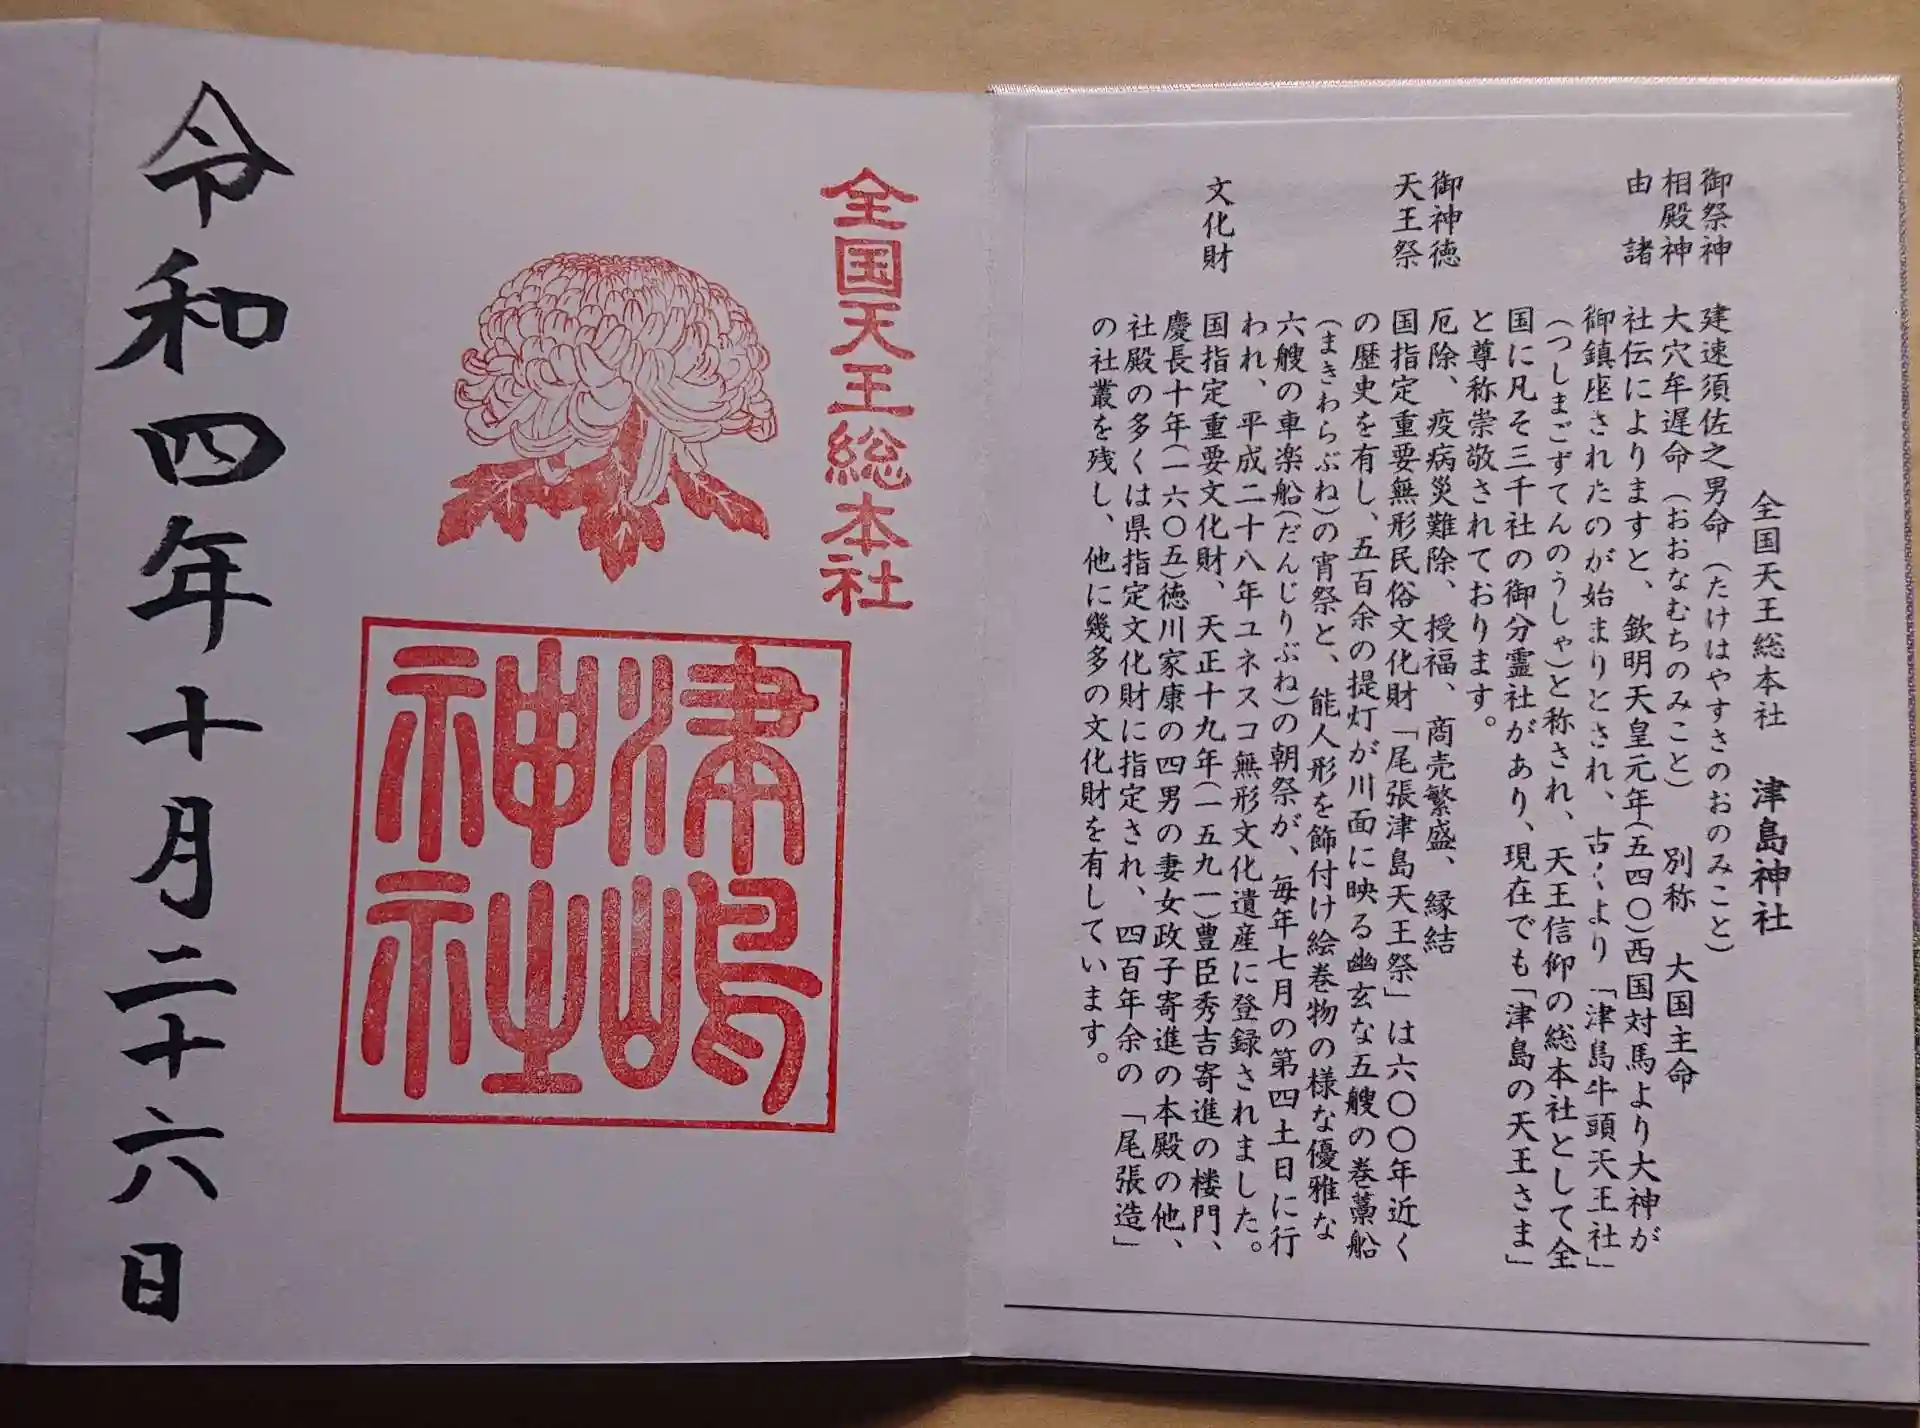 全国天王総本社 津島神社
御祭神 建速須佐之男命(たけはやすさのおのみこと)
相殿神 大穴牟遅命(おおなむちのみこと) 別称 大国主命
由諸 社伝によりますと、欽明天皇元年(五四〇)西国対馬より大神が
御鎮座されたのが始まりとされ、古くより「津島牛頭天王社」
(つしまごずてんのうしゃ)と称され、天王信仰の総本社として全
国に凡そ三千社の御分霊社があり、現在でも「津島の天王さま」
と尊称崇敬されております。
御神徳 厄除、疫病災難除、授福、商売繁盛、縁結
天王祭 国指定重要無形民俗文化財「尾張津島天王祭」は六〇〇年近く
の歴史を有し、五百余の提灯が川面に映る幽玄な五艘の巻藁船
(まきわらぶね)の宵祭と、能人形を飾付け絵巻物の様な優雅な
六艘の車楽船(だんじりぶね)の朝祭が、毎年七月の第四土日に行
われ、平成二十八年ユネスコ無形文化遺産に登録されました。
文化財 国指定重要文化財、天正十九年(一五九一)豊臣秀吉寄進の楼門、
慶長十年(一六〇五)徳川家康の四男の妻女政子寄進の本殿の他、
社殿の多くは県指定文化財に指定され、四百年余の「尾張造」
の社叢を残し、他に幾多の文化財を有しています。
全国天王総本社
津嶋
神社
令和四年十月二十六日